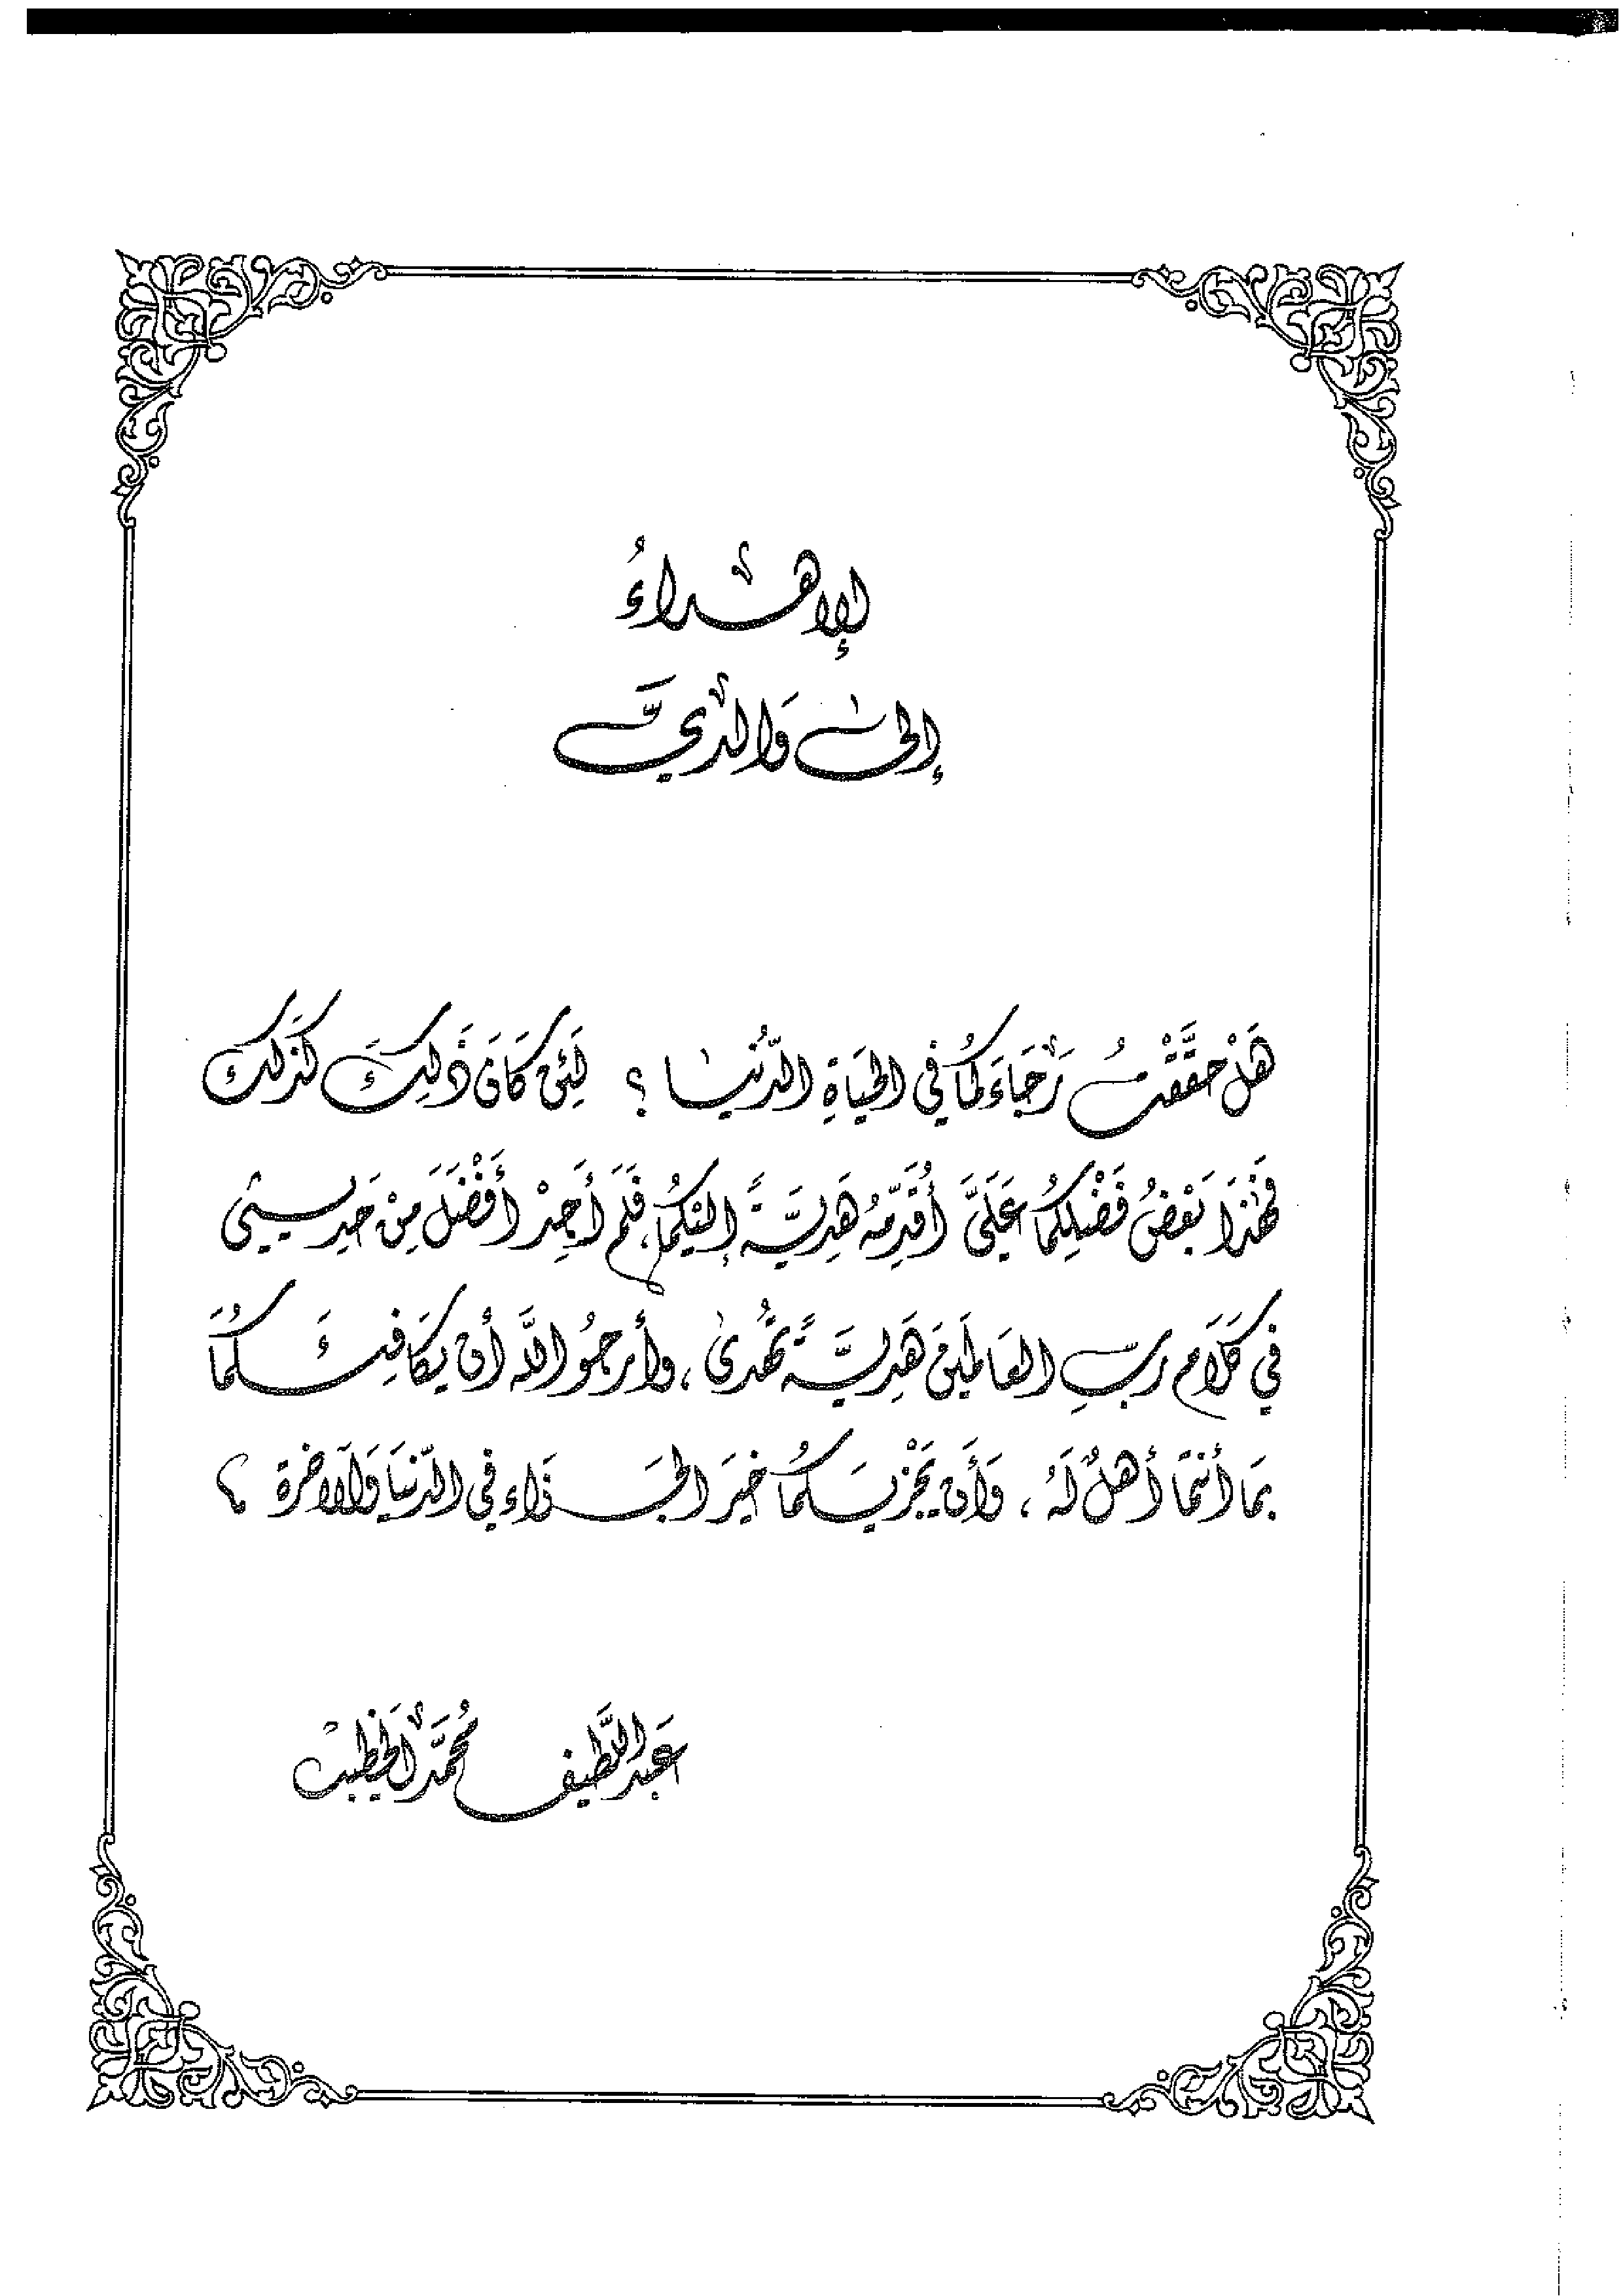 الإهْداءُ
إلىٰ وَالدْيَّ
هَلْ حقَّقْتُ رَجَاءَكُما في الحيَاةِ الدُّنيا ؟ لَئِن كَانَ ذَلِكَ كَذَلك
فَهٰذَا بَعْضُ فَضْلِكُما عَلَيَّ أُقَدِّمُه هَدِيَّةً إليْكُما، فَلَم أَجِدْ أَفْضَلَ مِنْ حَديثي
في كَلَام ربِّ العَالَمين هَديَّةً تُهْدىٰ ، وأرجُو اللَّه أن يكَافِئَكُما
بمَا أنتُما أهلٌ لَهُ ، وَأَن يَجْزيَكُما خيَر الجَزاء في الدّنيَا وَالآخرة ،
عَبد اللَّطيف محُمَّد الخَطيبْ